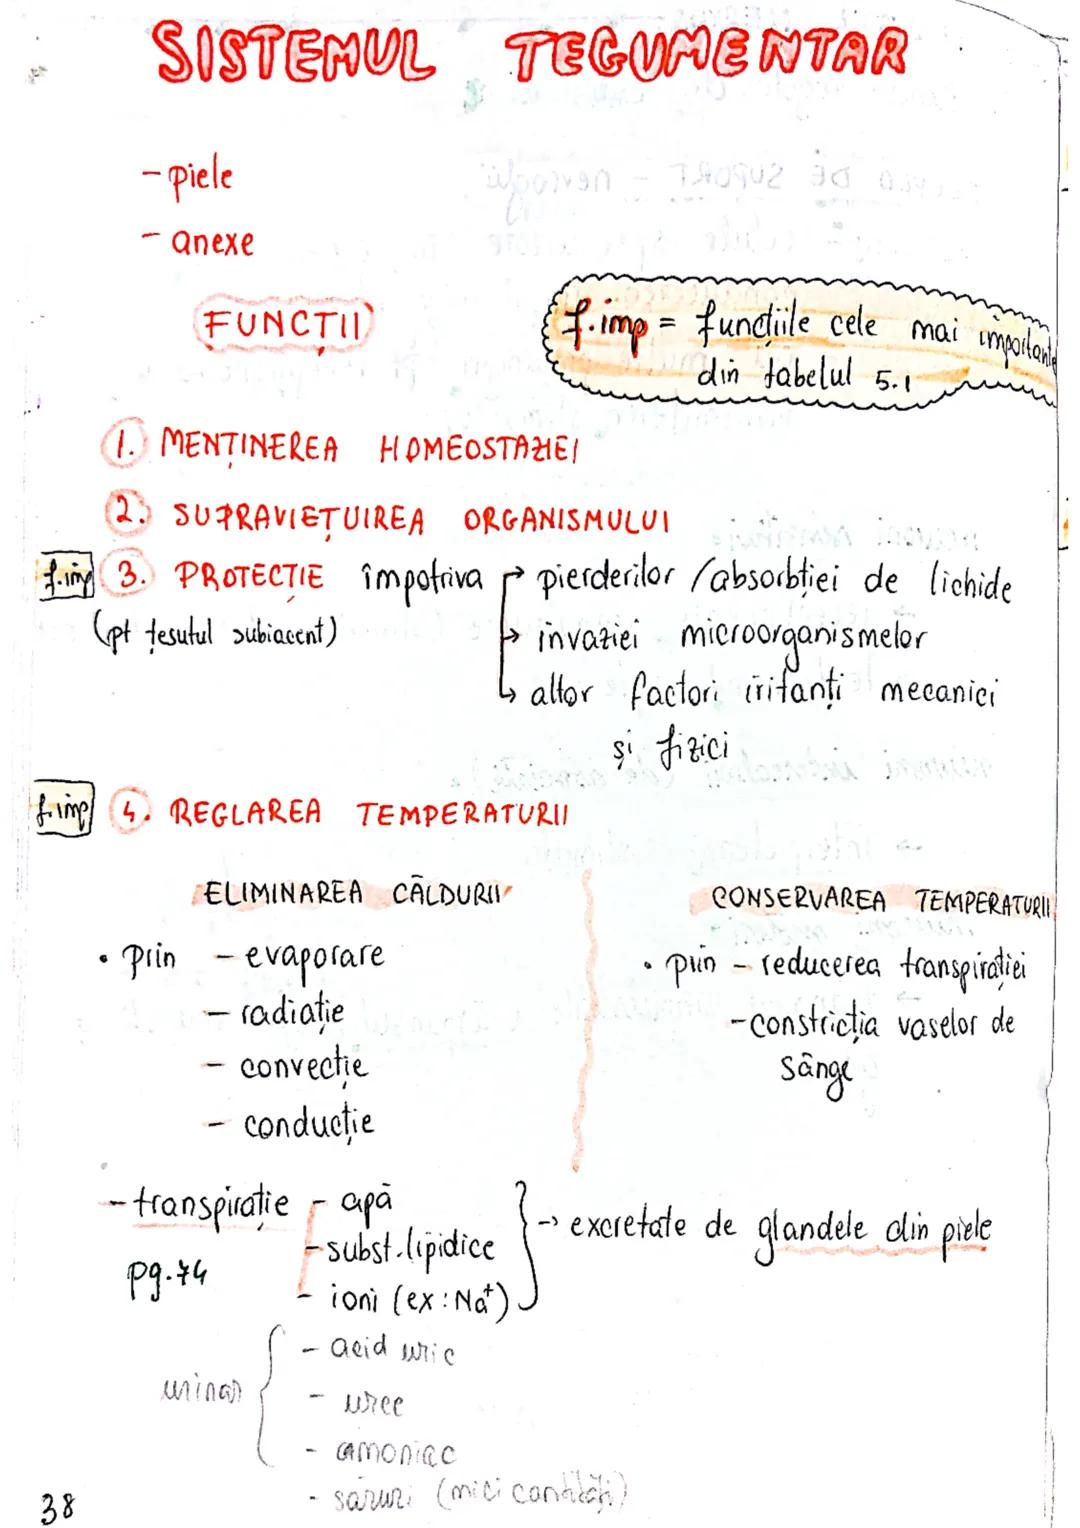 SISTEMUL TEGUMENTAR
- piele
- anexe
FUNCȚII
f.imp = funcțiile cele mai importante
din tabelul 5.1
1. MENȚINEREA HOMEOSTAZIEI
2. SUPRAVIEȚUIREA ORGANISMULUI
f.imp 3. PROTECȚIE împotriva → pierderilor / absorbției de lichide
(pt țesutul subiacent) → invaziei microorganismelor
→ altor factori iritanți mecanici
și fizici
f.imp 4. REGLAREA TEMPERATURII
ELIMINAREA CĂLDURII
• prin - evaporare
- radiație
- convecție
- conducție
CONSERVAREA TEMPERATURII
• prin - reducerea transpirației
- constricția vaselor de
sânge
- transpirație - apă
- subst. lipidice → excretate de glandele din piele
pg. 74
- ioni (ex: Na⁺)
- acid uric
urinar - uree
- amoniac
- săruri (mici cantități)
38